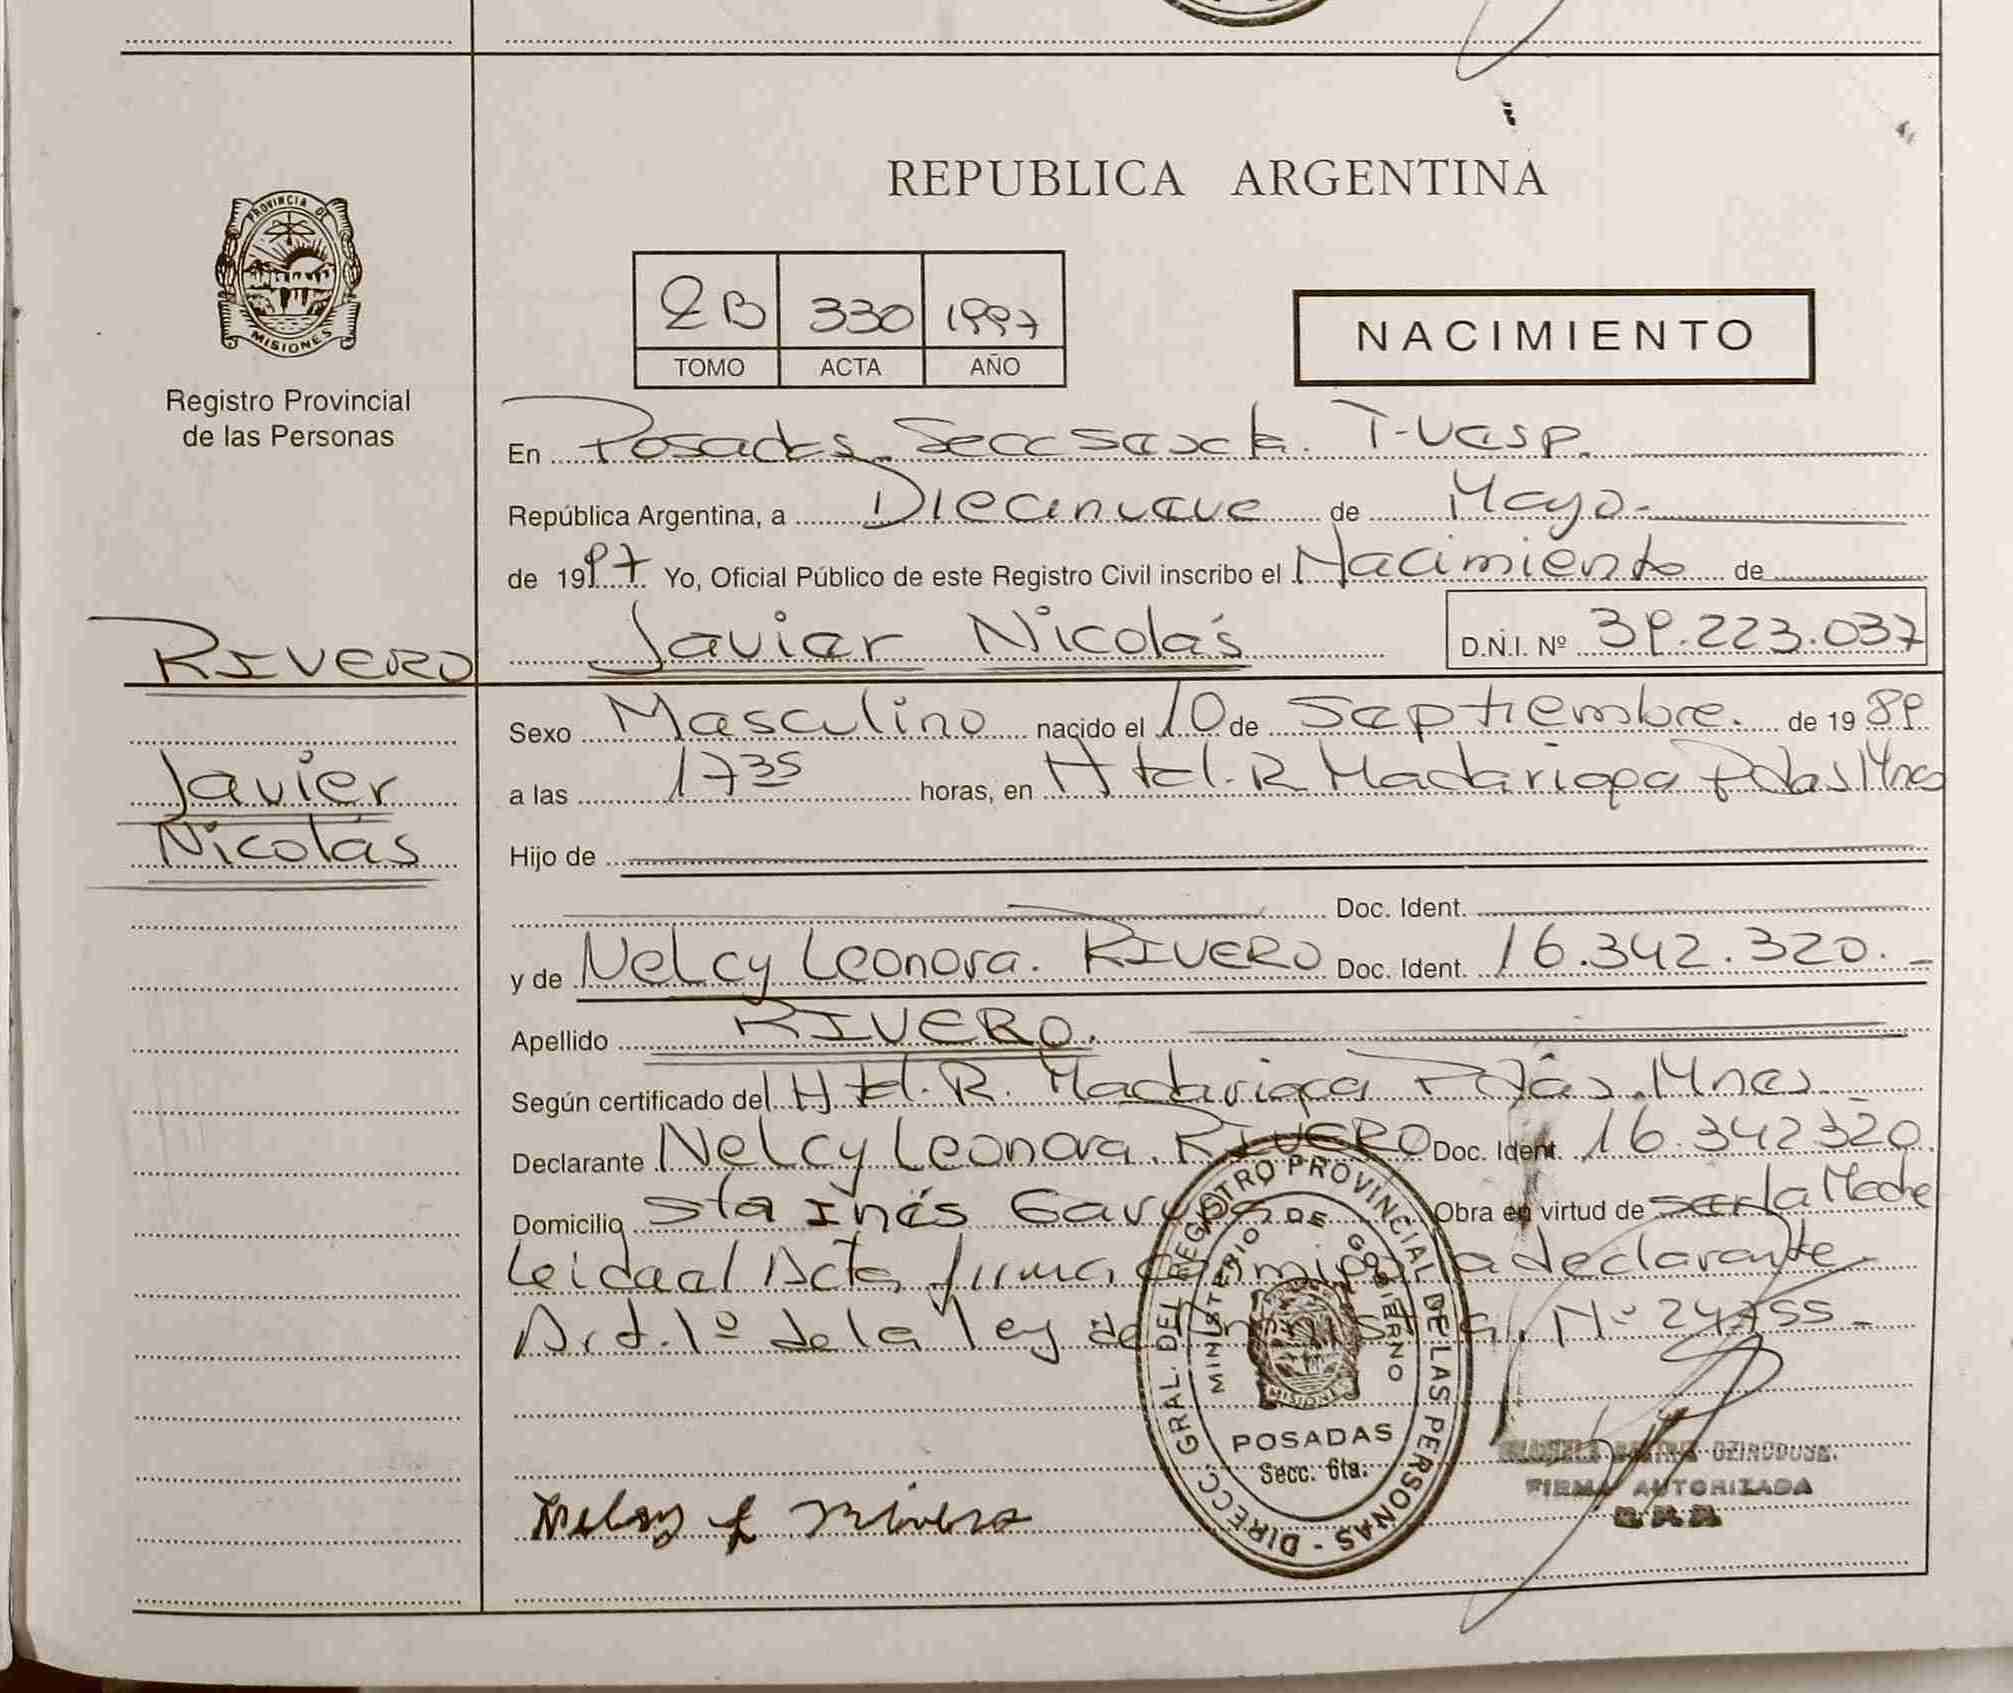 REPUBLICA ARGENTINA
PROVINCIA DE
MISIONES
Registro Provincial
de las Personas
2B 330 1997
TOMO ACTA AÑO
NACIMIENTO
En Posadas. Secc Sexta. T-Vesp.
República Argentina, a Diecinueve de Mayo.
de 1997 Yo, Oficial Público de este Registro Civil inscribo el Nacimiento de
Javier Nicolás D.N.I. Nº 39.223.037
RIVERO
Javier
Nicolás
Sexo Masculino nacido el 10 de Septiembre. de 1989
a las 17 35 horas, en Htal. R Madariaga Pdas Mnes
Hijo de
Doc. Ident.
y de Nelcy Leonora. RIVERO Doc. Ident. 16.342.320.
Apellido RIVERO.
Según certificado del Htal. R. Madariaga Pdas. Mnes.
Declarante Nelcy Leonora. RIVERO Doc. Ident. 16.342320.
Domicilio Sta Inés Garupá Obra en virtud de ser la Madre
Leida el Acta firma conmigo la declarante.
Art. 1º de la ley de Nº 24755
DIRECC. GRAL. DEL REGISTRO PROVINCIAL DE LAS PERSONAS -
MINISTERIO DE GOBIERNO
MISIONES
POSADAS
Secc. 6ta.
FIRMA AUTORIZADA
Nelcy L Rivero